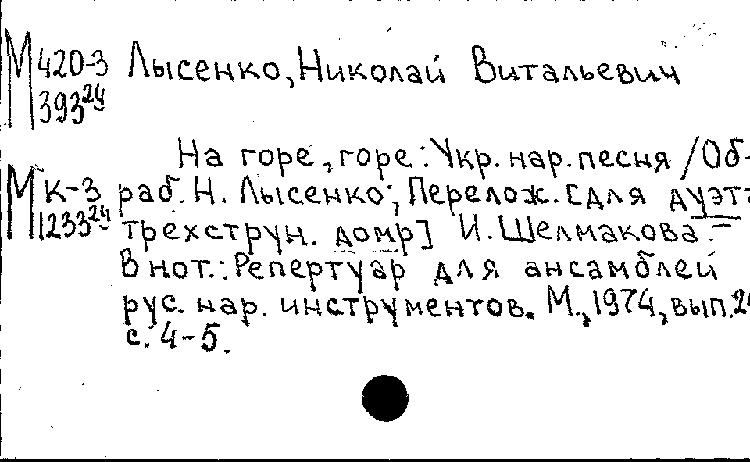 М420-3 Лысенко, Николай Витальевич
М393²⁴
На горе, горе: Укр. нар. песня / Об-
МК-3 раб. Н. Лысенко; Перелож. [для дуэта
1233²⁴ трехструн. домр] И. Шелмакова. –
В нот.: Репертуар для ансамблей
рус. нар. инструментов. М., 1974, вып. 24
с. 4-5.